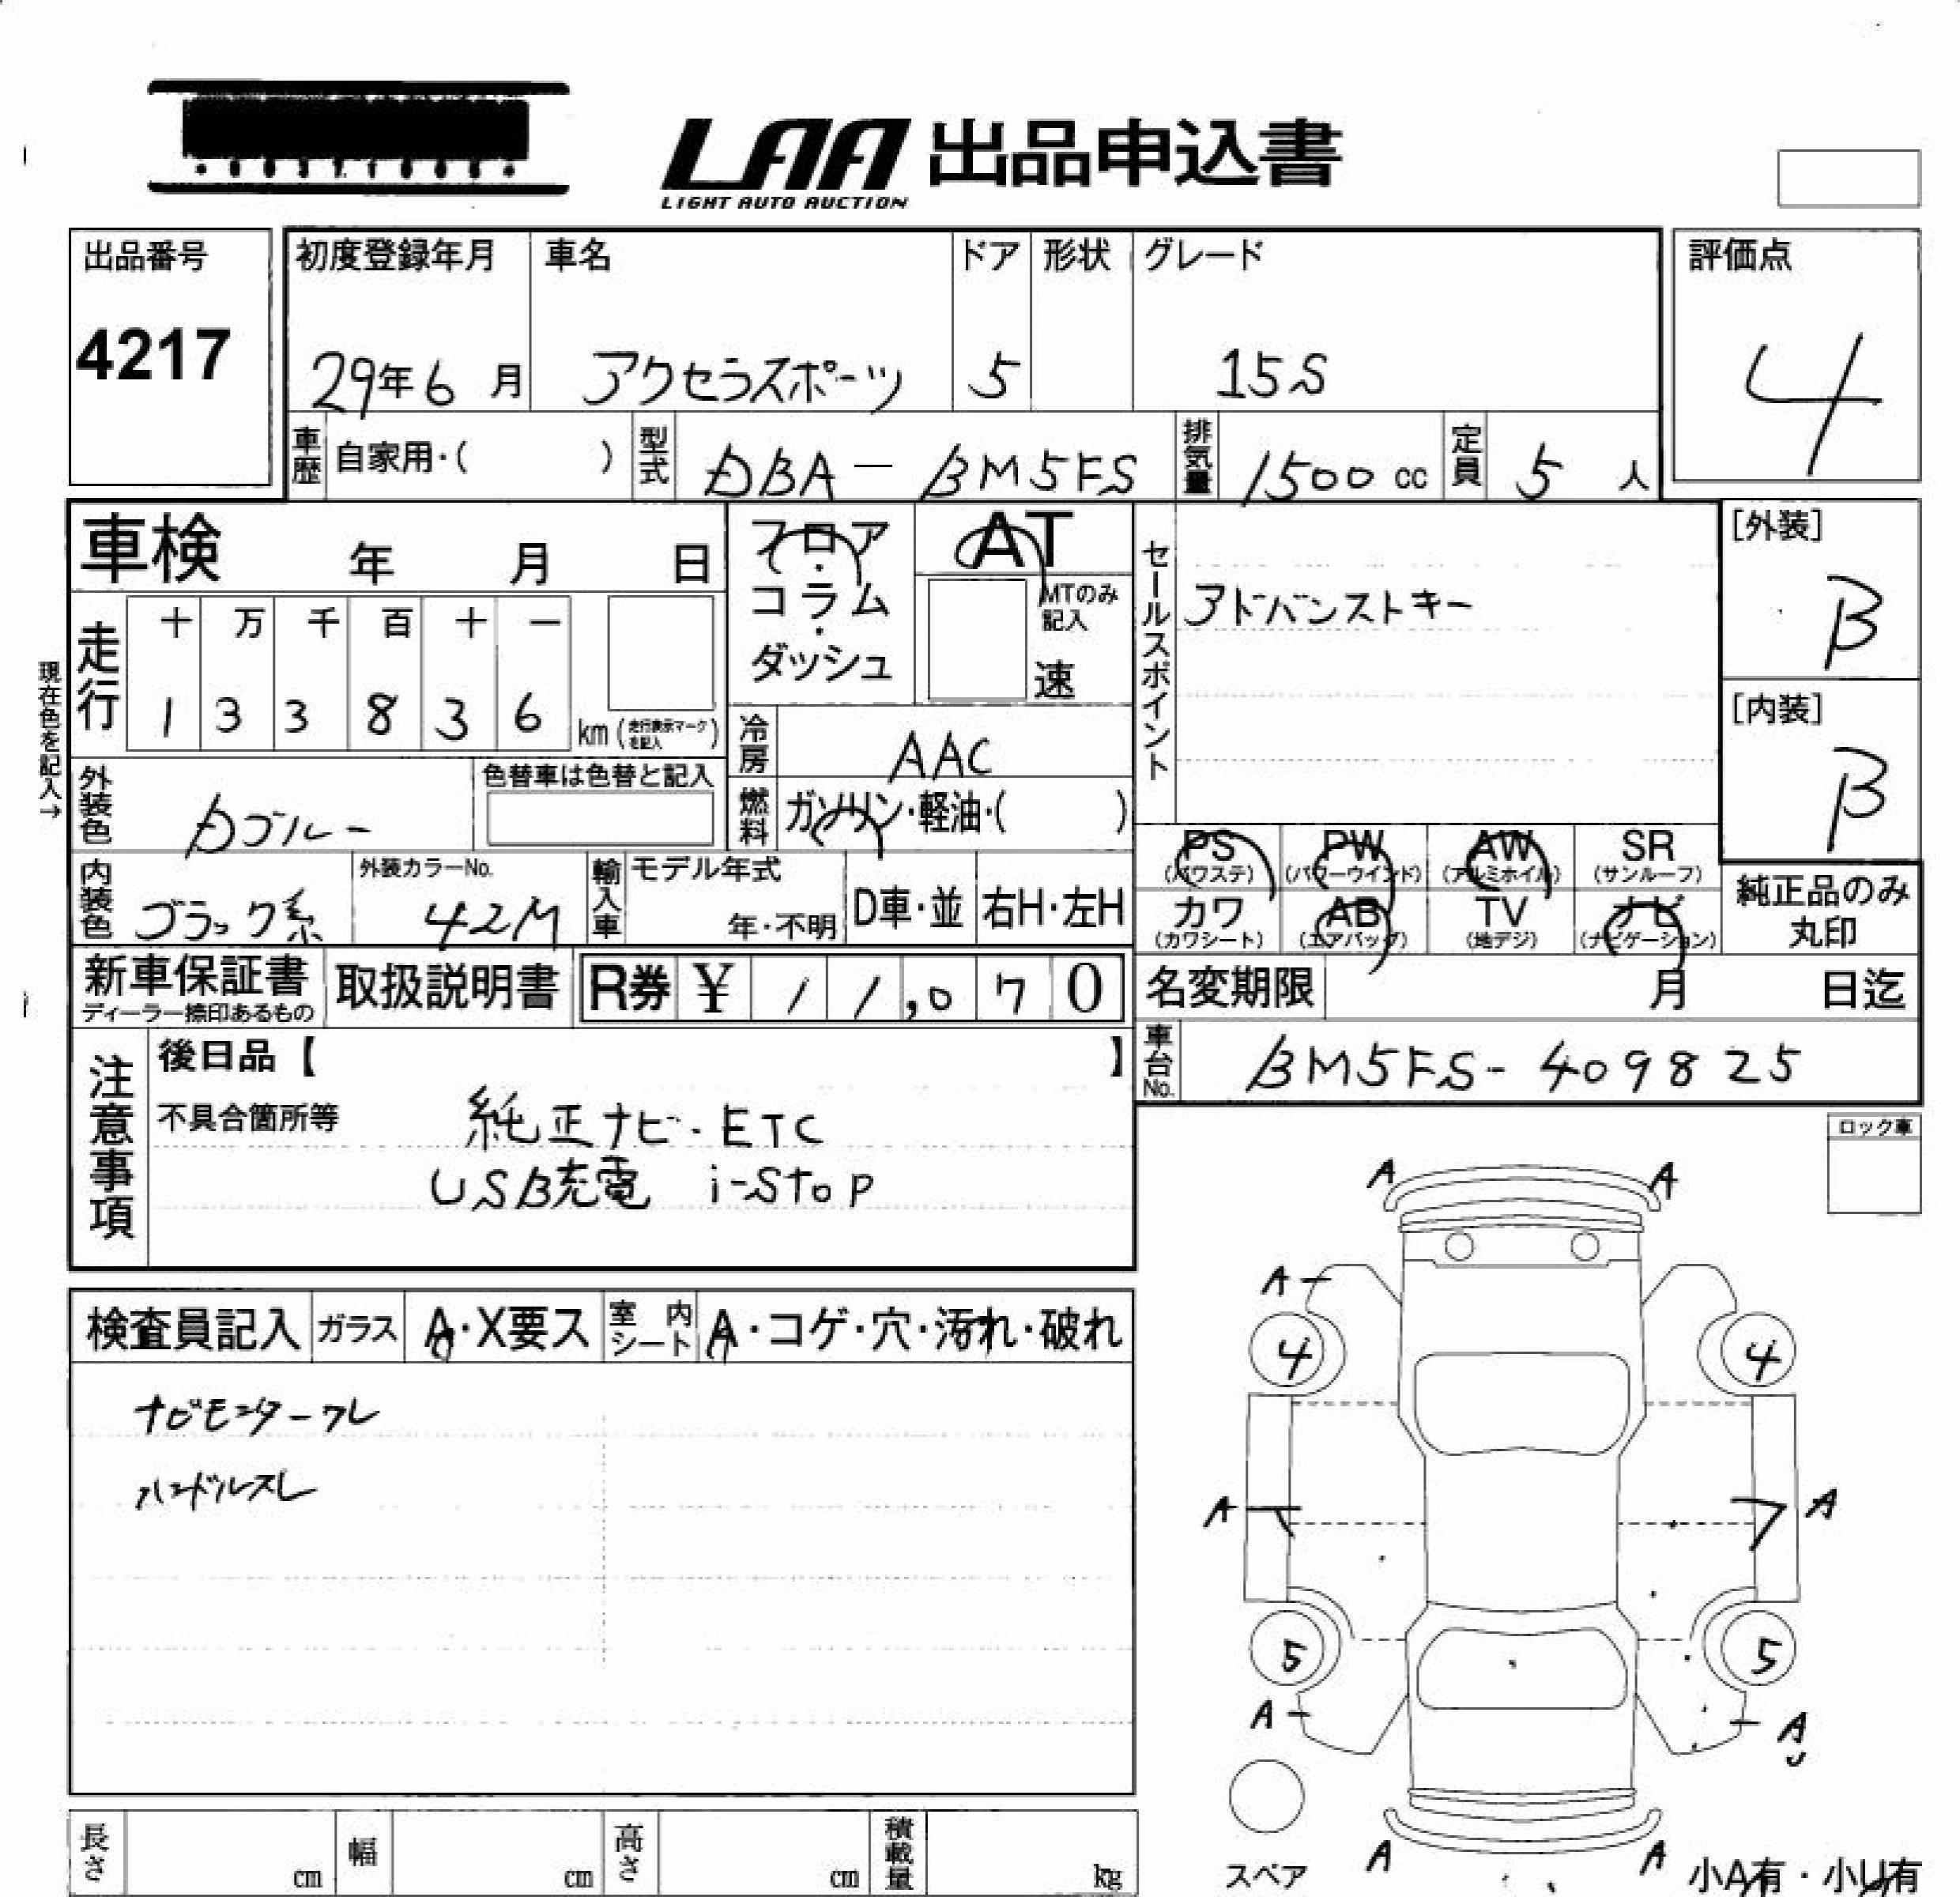 LAA 出品申込書
LIGHT AUTO AUCTION
出品番号 4217
初度登録年月 29年6月
車名 アクセラスポーツ
ドア 5
形状
グレード 15S
評価点 4
車歴 自家用・( )
型式 DBA-BM5FS
排気量 1500cc
定員 5人
車検 年 月 日
フロア・コラム・ダッシュ
AT
MTのみ記入
速
セールスポイント
アドバンストキー
[外装] B
[内装] B
現在色を記入→
走行
十 万 千 百 十 一
1 3 3 8 3 6 km (走行表示マークを記入)
冷房 AAC
燃料 ガソリン・軽油・( )
外装色 Dブルー
色替車は色替と記入
内装色 ブラック系
外装カラーNo. 42M
輸入車 モデル年式 年・不明
D車・並 右H・左H
PS (パワステ) PW (パワーウインド) AW (アルミホイル) SR (サンルーフ)
カワ (カワシート) AB (エアバッグ) TV (地デジ) ナビ (ナビゲーション)
純正品のみ丸印
新車保証書
ディーラー捺印あるもの
取扱説明書
R券 ¥11,070
名変期限 月 日迄
車台No. BM5FS-409825
注意事項
後日品【 】
不具合箇所等
純正ナビ・ETC
USB充電 i-stop
ロック車
検査員記入 ガラス A・X要ス 室内シート A・コゲ・穴・汚れ・破れ
ナビモニターワレ
ハンドルスレ
A A
A
4 4
A A
5 5
A A
A A
スペア
小A有・小U有
長さ cm 幅 cm 高さ cm 積載量 kg